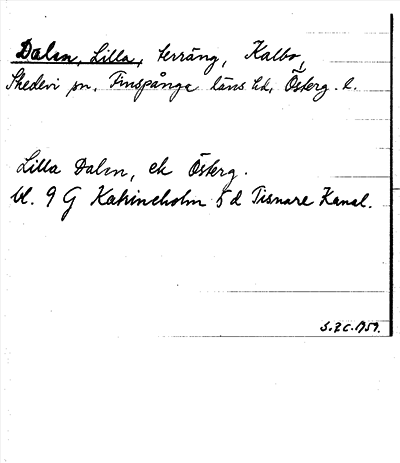 Dalen, Lilla, terräng, Kalbo,
Skedevi sn. Finspånga läns hd, Österg. l.
Lilla Dalen, ek Österg.
bl. 9 G Katrineholm 5 d Tisnare Kanal.
1959.